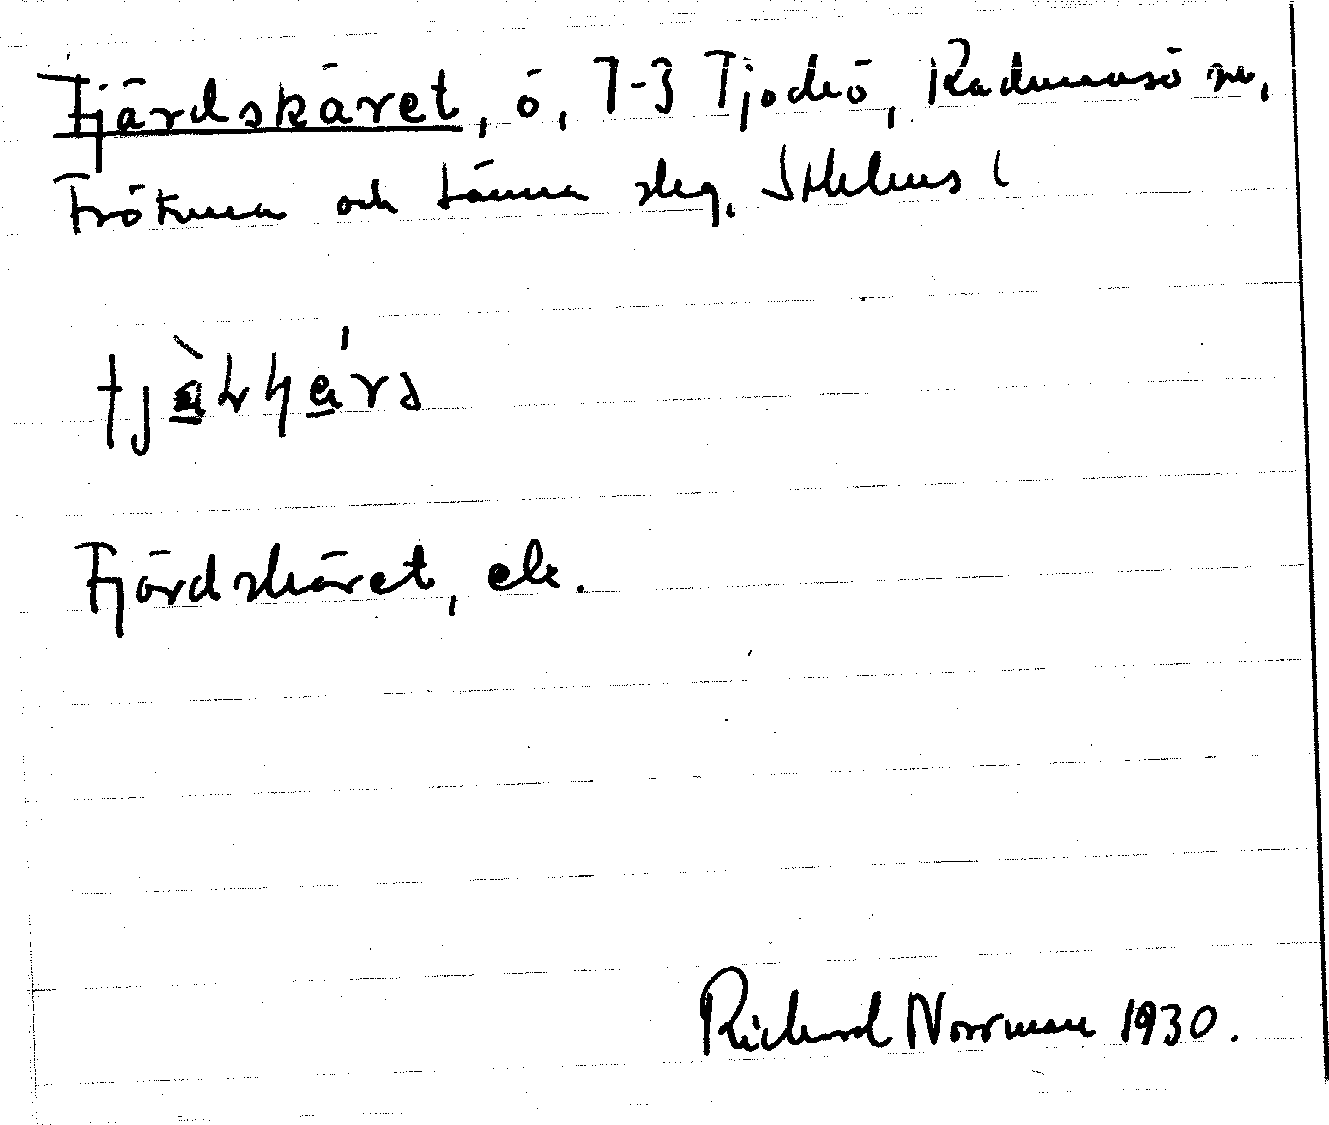 Fjärdskäret, ö, 1-3 Tjockö, Rådmansö sn,
Frötuna och Länna skg, Sthlms l
Fjärdskäret, ek.
Richard Norrman 1930.